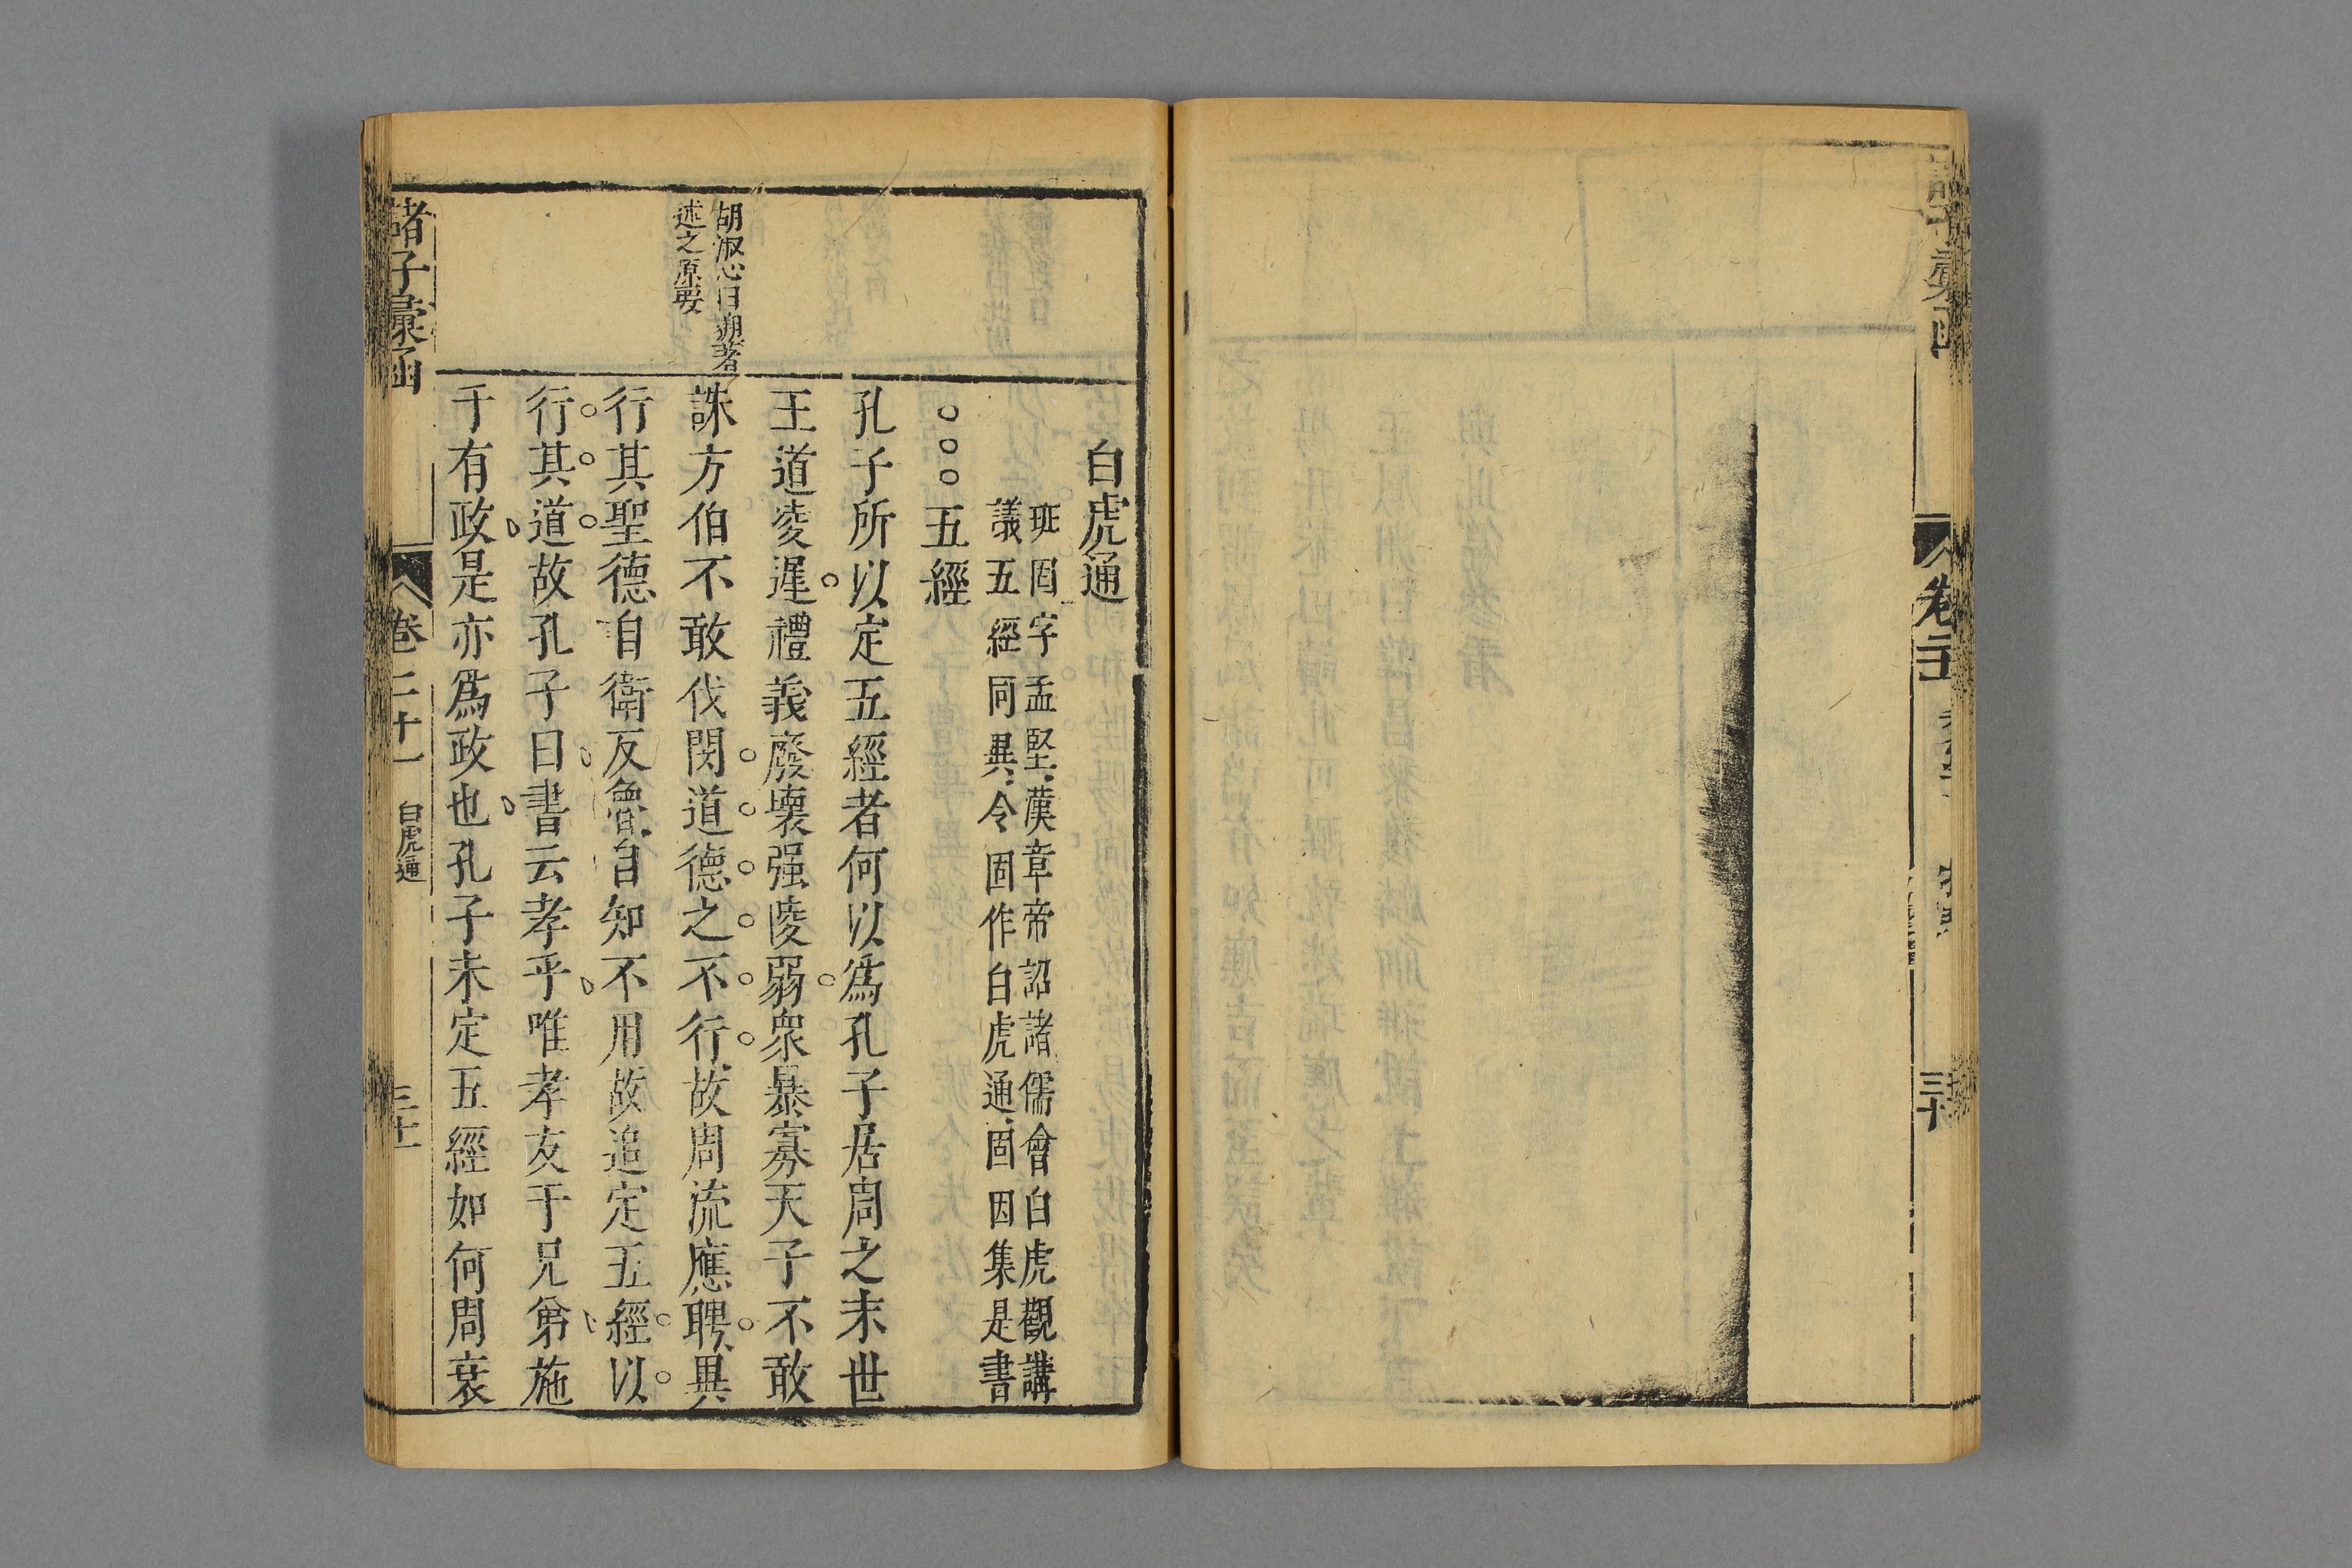 白虎通
班固字孟堅漢章帝詔諸儒會白虎觀講
議五經同異令固作白虎通固因集是書
五經
孔子所以定五經者何以爲孔子居周之末世
王道凌遲禮義廢壞强陵弱衆暴寡天子不敢
誅方伯不敢伐閔道德之不行故周流應聘異
行其聖德自衛反魯自知不用故追定五經以
行其道故孔子曰書云孝乎唯孝友于兄弟施
于有政是亦爲政也孔子未定五經如何周衰
胡淑心曰遡著
述之原要
諸子彙函
卷二十一
白虎通
三十一